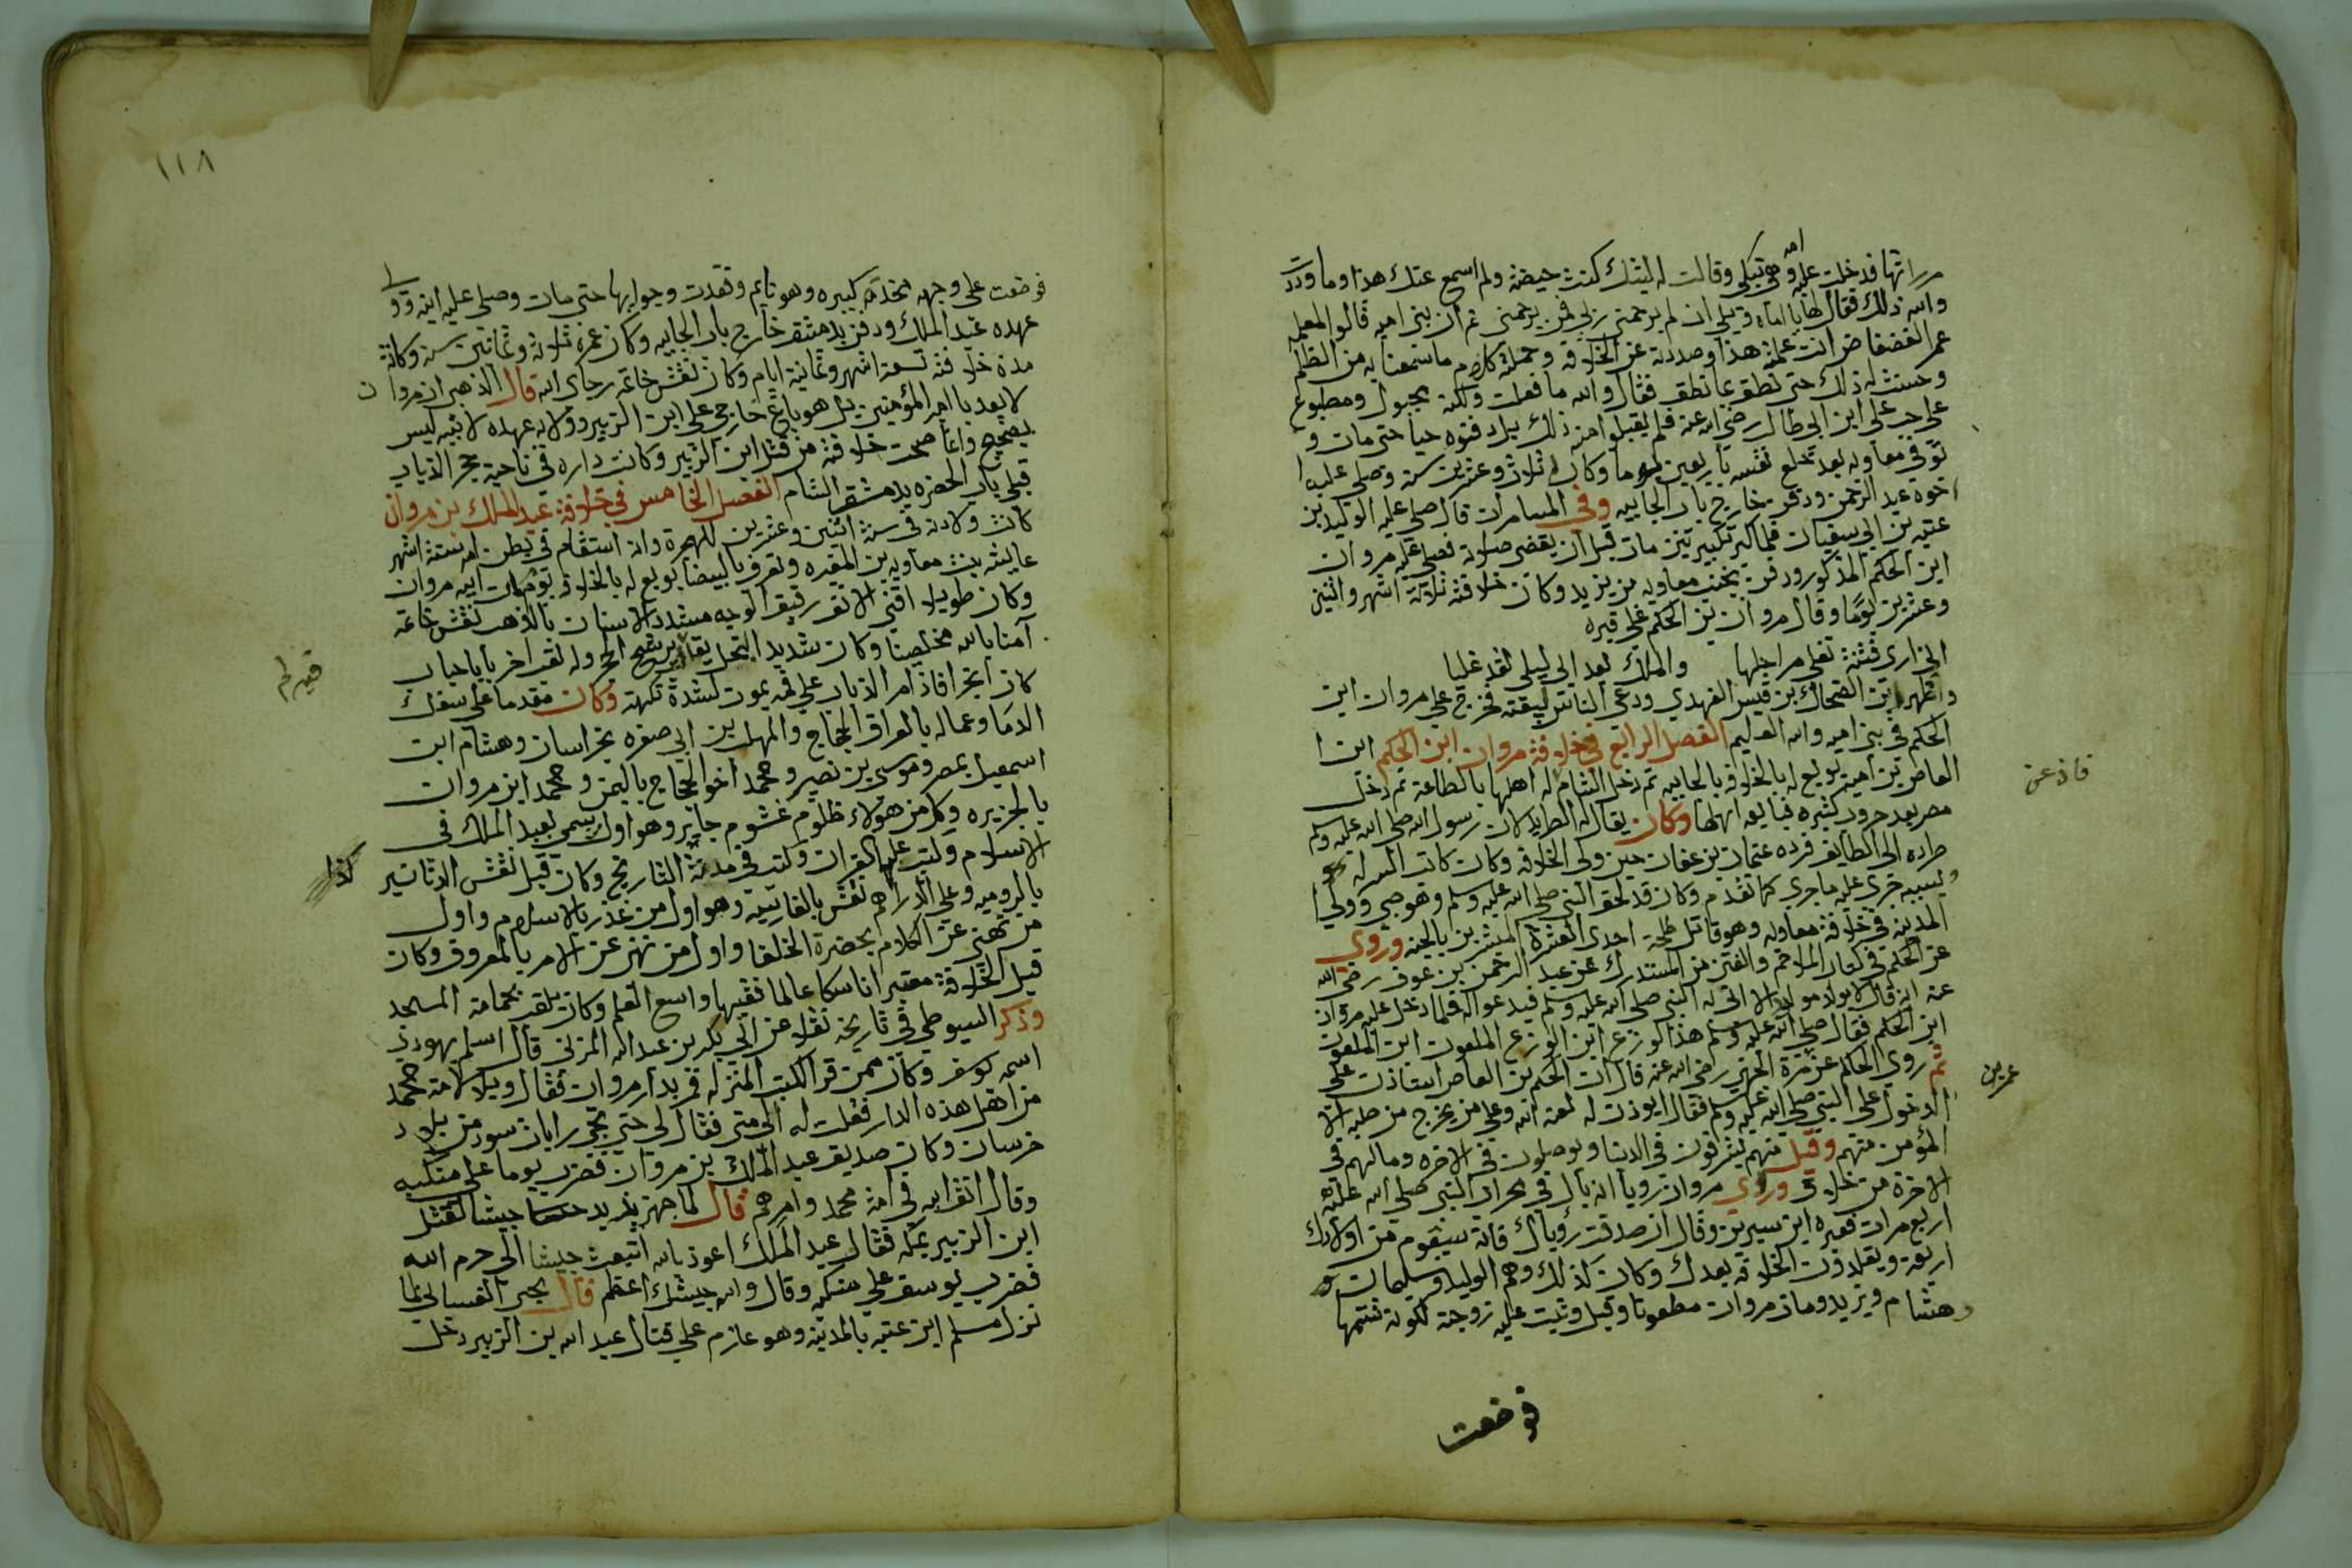 مرراتها فدخلت عليه امه وهي تبكي وقالت له ليتك كنت حيضة ولم اسمع عنك هذا وما وددت
والله ذلك فقال لها يا اماه ويلي ان لم يرحمني ربي فمن يرحمني ثم ان بني اميه قالو المعلمه
عمر القضفاض انت علمته هذا وصددته عن الخلافة وحملته كلام ما سمعنا به من الظلم
وحسنت له ذلك حتى نطق بما نطق فقال والله ما فعلت ولكنه مجبول ومطبوع
على حب علي ابن ابي طالب رضي الله عنه فلم يقبلوا منه ذلك بل دفنوه حيا حتى مات و
توفي معاويه بعد تخلع نفسه باربعين يوما وكان له ثلاث وعشرين سنة وصلى عليه ا
خوه عبد الرحمن ودفن خارج باب الجابيه وفي المسامرات قال صلى عليه الوليد بن
عتبه بن ابي سفيان فلما كبر تكبيرتين مات قبل ان يقضي صلاته فصلى عليه مروان
ابن الحكم المذكور ودفن بجنب معاويه بن يزيد وكانت خلافته ثلاثة اشهر واثنين
وعشرين يوما وقال مروان بن الحكم على قبره
اني ارى فتنة تغلي مراجلها والملك بعد ابي ليلى لقد غلبا
واظهر ابن الضحاك بن قيس الفهدي ودعى الناس لبيعته فخرج على مروان ابن
الحكم في بني اميه والله العليم الفصل الرابع في خلافة مروان ابن الحكم ابن ا
العاص بن امية بويع له بالخلافة بالجابيه ثم دخل الشام له اهلها بالطاعة ثم دخل
مصر بعد حروب كثيره فبايعه اهلها وكان يقال له الطريد لان رسول الله صلى الله عليه وسلم
طرده الى الطايف فرده عثمان بن عفان حين ولي الخلافه وكان كاتب السر له
وبسببه جرى عليه ما جرى كما تقدم وكان قد لحق النبي صلى الله عليه وسلم وهو صبي وولي ا
المدينه في خلافة معاويه وهو قاتل طلحة احدى العشرة المبشرين بالجنه وروى
عن الحكم في كتاب الملاحم والفتن من المستدرك عن عبد الرحمن بن عوف رضي الله
عنه انه قال لا يولد مولود الا اتى له النبي صلى الله عليه وسلم فيدعو له فلما دخل عليه مروان
ابن الحكم فقال صلى الله عليه وسلم هذا الوزغ ابن الوزغ الملعون ابن الملعون
ثم روى الحاكم عن مرة الجهني رضي الله عنه قال ان الحكم بن العاص استاذن على
الدخول على النبي صلى الله عليه وسلم فقال ايوذن له لعنه الله وعلى من يخرج من صلبه الا
المؤمن منهم وقيل منهم يشرفون في الدنيا ويوصلون في الاخره وما لهم في
الاخرة من خلاق وروى مروان رويا انه بال في محراب النبي صلى الله عليه
اربع مرات فعبره ابن سيرين وقال ان صدقت رؤياك فانه سيقوم من اولادك
اربعة ويقلدون الخلافه بعدك وكان كذلك وهم الوليد وسليمان
وهشام ويزيد ومات مروان مطعونا وقيل وثبت عليه زوجته لكونه شتمها
فوضعت
فاذعن
عمر بن
١١٨
فوضعت على وجهه مخدة كبيره وهو نايم وقعدت وجوارها حتى مات وصلى عليه ابنه وو
عهده عبد الملك ودفن بدمشق خارج باب الجابيه وكان عمره ثلاثة وثمانين سنة وكانة
مدة خلافته تسعة اشهر وثمانية ايام وكان نقش خاتمه رجاي الله قال الذهبي ان مروان
لا يعد بامير المؤمنين بل هو باغ خارجي على ابن الزبير وولايه عهده لابنيه ليس
بصحيح وانما صحت خلافته من قتل ابن الزبير وكانت داره في ناحية حجر الذباب
قبلي باب الخضره بدمشق الشام الفصل الخامس في خلافة عبد الملك بن مروان
كانت ولادته في سنة اثنين وعشرين للهجرة وانه استقام في بطن امه ستة اشهر
عايشه بنت معاويه بن المغيره وتعرف بالبيضا بويع له بالخلافه يوم مات ابيه مروان
وكان طويلا اقنى الانف رقيق الوجه مشدد الاسنان بالذهب نقش خاتمه
آمنا بالله مخلصا وكان شديد البخل يقال برشح الحجر وله لقب اخر بابا حباب
كان ابخر افاذا مر الذباب على فمه يموت لشدة نكهته وكان مقدما على سفك
الدما وعماله بالعراق الحجاج والمهلب بن ابي صفره بخراسان وهشام ابن
اسمعيل بمصر وموسى بن نصير ومحمد اخو الحجاج باليمن ومحمد ابن مروان
بالجزيره وكل من هولاء ظلوم غشوم جاير وهو اول من سمي بعبد الملك في
الاسلام وكتب عليها القران وكتب في مدته التاريخ وكان قبل نقش الدنانير
بالروميه وعلى الدراهم نقش بالفارسيه وهو اول من غدر بالاسلام واول
من نهى عن الكلام بحضرة الخلفا واول من نهى عن الامر بالمعروف وكان
قبل الخلافة معتبرا ناسكا عالما فقيها واسع العلم وكان يلقب بحمامة المسجد
وذكر السيوطي في تاريخه نقلا عن ابي بكر بن عبد الله المزني قال اسلم يهودي
اسمه يوسف وكان ممن قرا الكتب المنزله فمر بدار مروان فقال ويل لامة محمد
من اهل هذه الدار فقلت له الى متى فقال لي حتى تجي رايات سود من بلاد
خرسان وكان صديق عبد الملك بن مروان فضرب يوما على منكبه
وقال اتق الله في امة محمد وامرهم قال لما جهز يزيد جيشا لقتل
ابن الزبير بمكه فقال عبد الملك اعوذ بالله اتبعث جيشا الى حرم الله
فضرب يوسف على منكبه وقال والله جيشك اعظم قال يحيى الغساني لما
نزل مسلم ابن عقبه بالمدينه وهو عازم على قتال عبد الله بن الزبير دخل
كذا